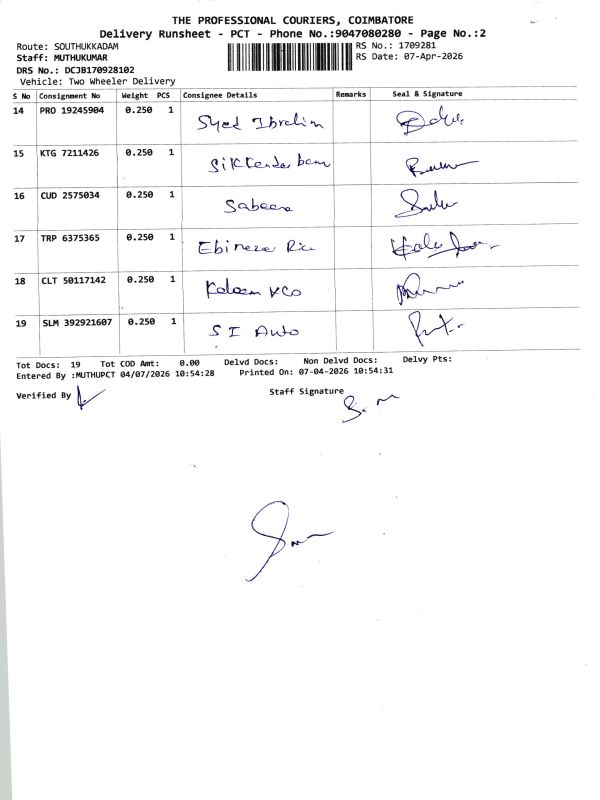 THE PROFESSIONAL COURIERS, COIMBATORE
Delivery Runsheet - PCT - Phone No.:9047080280 - Page No.:2
Route: SOUTHUKKADAM
RS No.: 1709281
Staff: MUTHUKUMAR
RS Date: 07-Apr-2026
DRS No.: DCJB170928102
Vehicle: Two Wheeler Delivery
S No Consignment No Weight PCS Consignee Details Remarks Seal & Signature
14 PRO 19245904 0.250 1 Syed Ibrahim
15 KTG 7211426 0.250 1
16 CUD 2575034 0.250 1 Sabeena
17 TRP 6375365 0.250 1
18 CLT 50117142 0.250 1
19 SLM 392921607 0.250 1 S I Auto
Tot Docs: 19 Tot COD Amt: 0.00 Delvd Docs: Non Delvd Docs: Delvy Pts:
Entered By :MUTHUPCT 04/07/2026 10:54:28 Printed On: 07-04-2026 10:54:31
Verified By Staff Signature